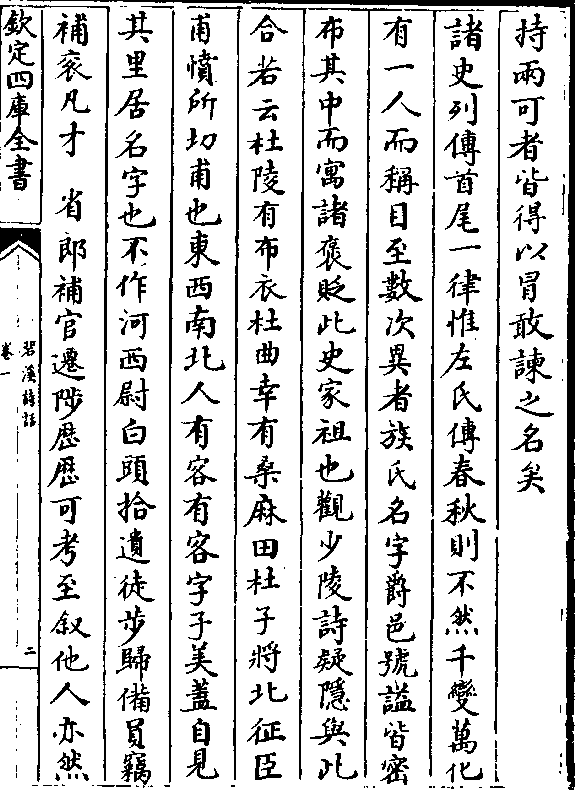 持兩可者皆得以冒敢諫之名矣
諸史列傳首尾一律惟左氏傳春秋則不然千變萬化
有一人而稱目至數次異者族氏名字爵邑號謚皆密
布其中而寓諸褒貶此史家祖也觀少陵詩疑隱與此
合若云杜陵有布衣杜曲幸有桑麻田杜子將北征臣
甫憤所切甫也東西南北人有客有客字子美蓋自見
其里居名字也不作河西尉白頭拾遺徒步歸備員竊
補衮凡才 省郎補官遷陟歴歴可考至叙他人亦然
欽定四庫全書
䂬溪詩話
卷一
二